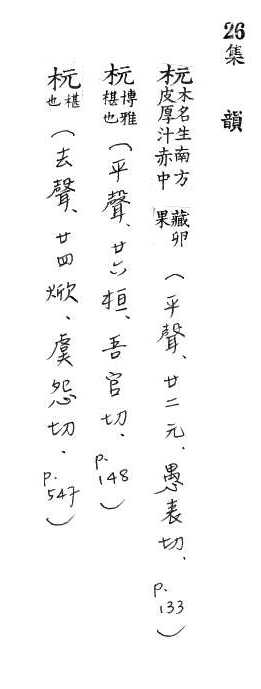 26集韻
杬木名生南方皮厚汁赤中藏卵果(平聲、廿二元、愚袁切、p.133)
杬博雅椹也(平聲、廿六桓、吾官切、p.148)
杬椹也(去聲、廿四焮、虞怨切.p.547)